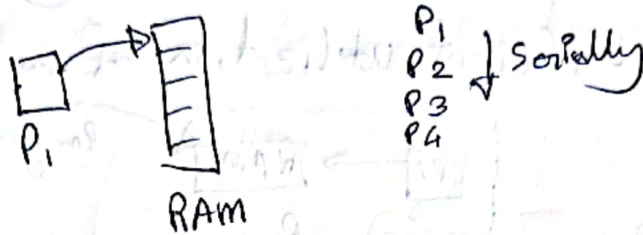 P1
RAM
P1
P2
P3
P4
Serially